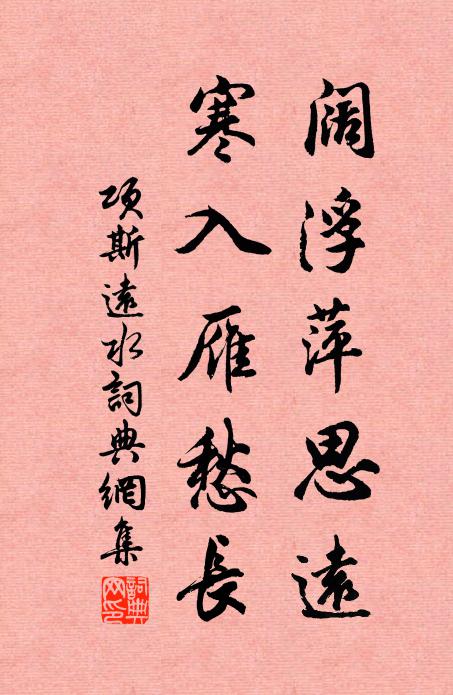 闊浮萍思遠
寒入雁愁長
項斯遠水詞典網集
詞典
网印